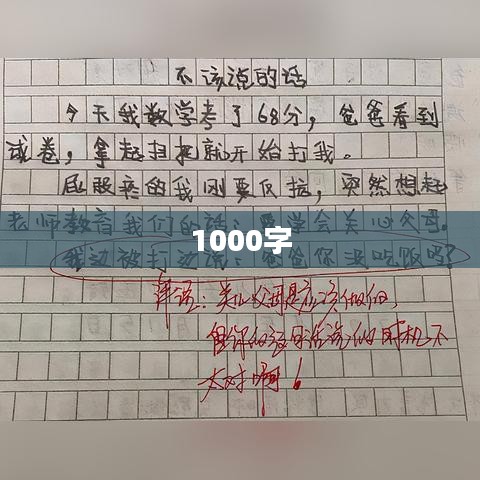 不该说的话
今天我数学考了68分，爸爸看到
试卷，拿起扫把就开始打我。
屁股疼的我刚要反抗，突然想起
老师教育我们的话：要学会关心父母。
1000字
我边被打边说：爸爸你没吃饭吗？
评语：关心父母是应该做的，
但你的这句话说的时机不
太对啊！